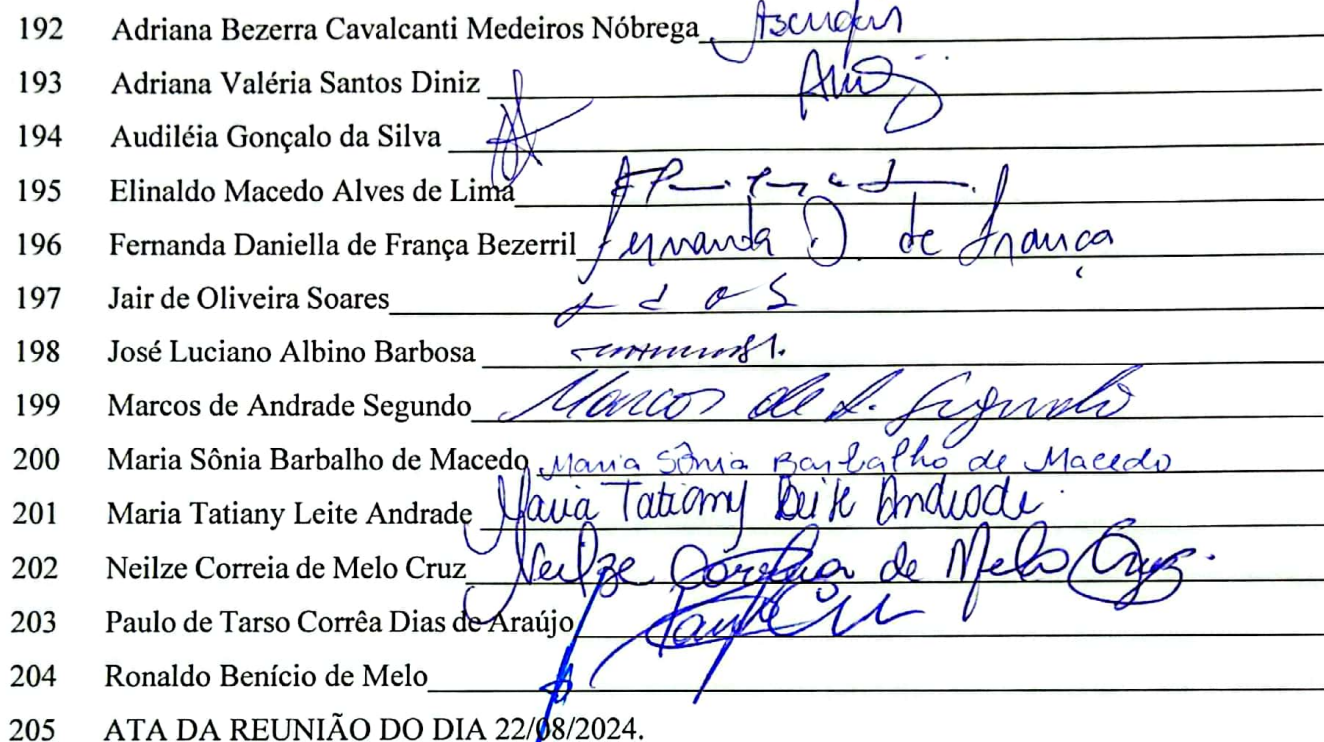 192 Adriana Bezerra Cavalcanti Medeiros Nóbrega
193 Adriana Valéria Santos Diniz
194 Audiléia Gonçalo da Silva
195 Elinaldo Macedo Alves de Lima
196 Fernanda Daniella de França Bezerril Fernanda D. de França
197 Jair de Oliveira Soares
198 José Luciano Albino Barbosa
199 Marcos de Andrade Segundo Marcos de A. Segundo
200 Maria Sônia Barbalho de Macedo Maria Sônia Barbalho de Macedo
201 Maria Tatiany Leite Andrade Maria Tatiany Leite Andrade
202 Neilze Correia de Melo Cruz Neilze Correia de Melo Cruz.
203 Paulo de Tarso Corrêa Dias de Araújo
204 Ronaldo Benício de Melo
205 ATA DA REUNIÃO DO DIA 22/08/2024.